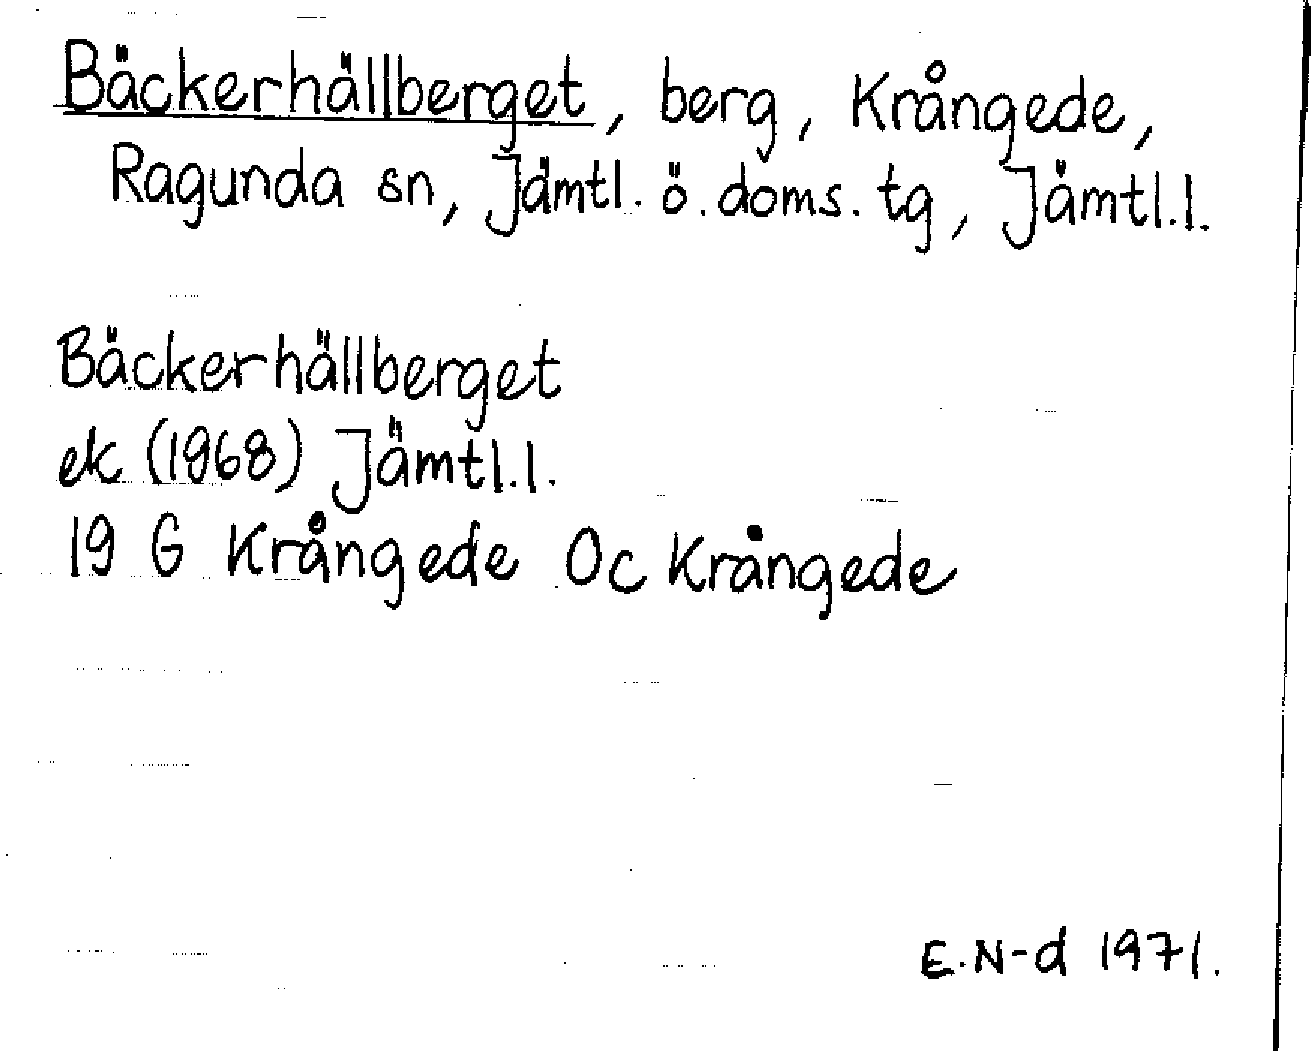 Bäckerhällberget, berg, Krångede,
Ragunda sn, Jämtl. ö. doms. tg, Jämtl.l.
Bäckerhällberget
ek (1968) Jämtl.l.
19 G Krångede Oc Krångede
E.N-d 1971.